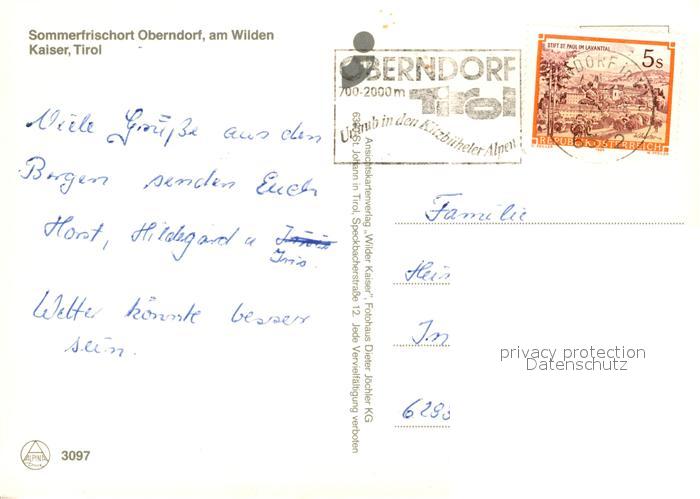 Sommerfrischort Oberndorf, am Wilden
Kaiser, Tirol
OBERNDORF
700-2000m Tirol
Urlaub in den Kitzbüheler Alpen
STIFT ST. PAUL IM LAVANTTAL
5s
REPUBLIK ÖSTERREICH
Viele Grüße aus den
Bergen senden Euch
Horst, Hildegard u
Iris.
Wetter könnte besser
sein.
Ansichtskartenverlag „Wilder Kaiser", Fotohaus Dieter Jöchler KG
St. Johann in Tirol, Speckbacherstraße 12. Jede Vervielfältigung verboten
Familie
Hein
In
6293
privacy protection
Datenschutz
ALPINA
3097